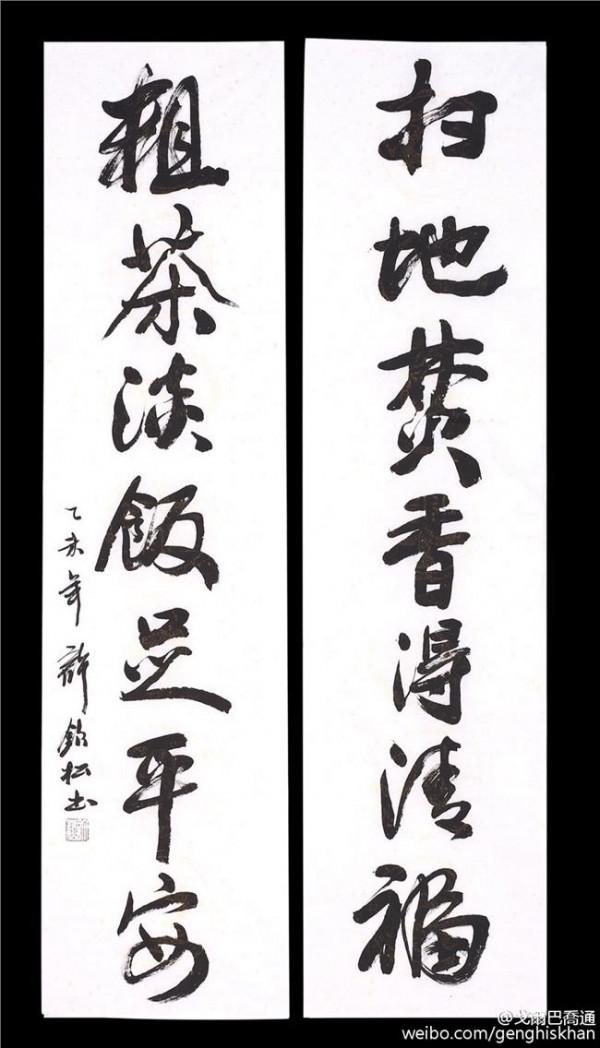 扫地焚香得清福
粗茶淡飯足平安
乙未年 許銘松书
@戈爾巴喬通
weibo.com/genghiskhan